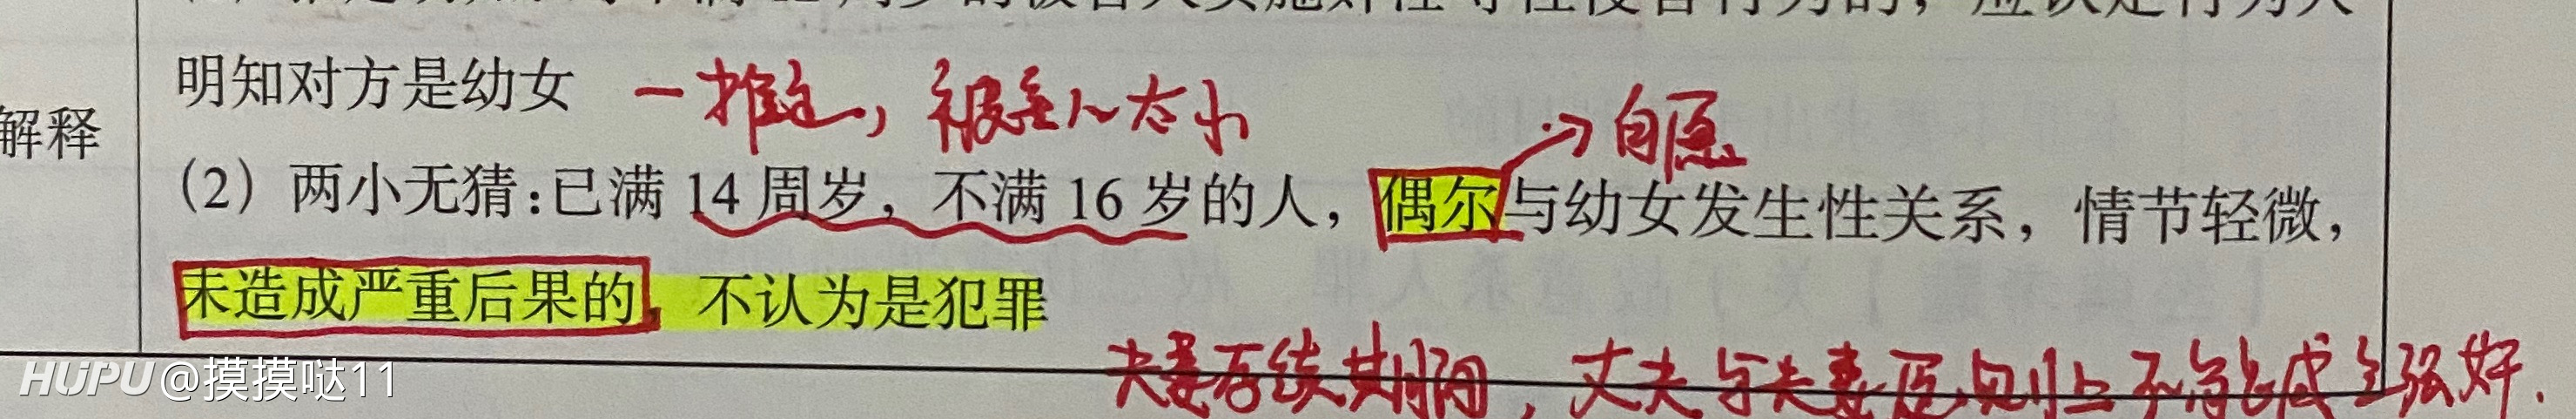 明知对方是幼女 一推定，被害人太小
→自愿
解释
（2）两小无猜：已满 14 周岁，不满 16 岁的人，偶尔与幼女发生性关系，情节轻微，
未造成严重后果的，不认为是犯罪
夫妻存续期间，丈夫与夫妻原则上不构成强奸.
HUPU @摸摸哒11